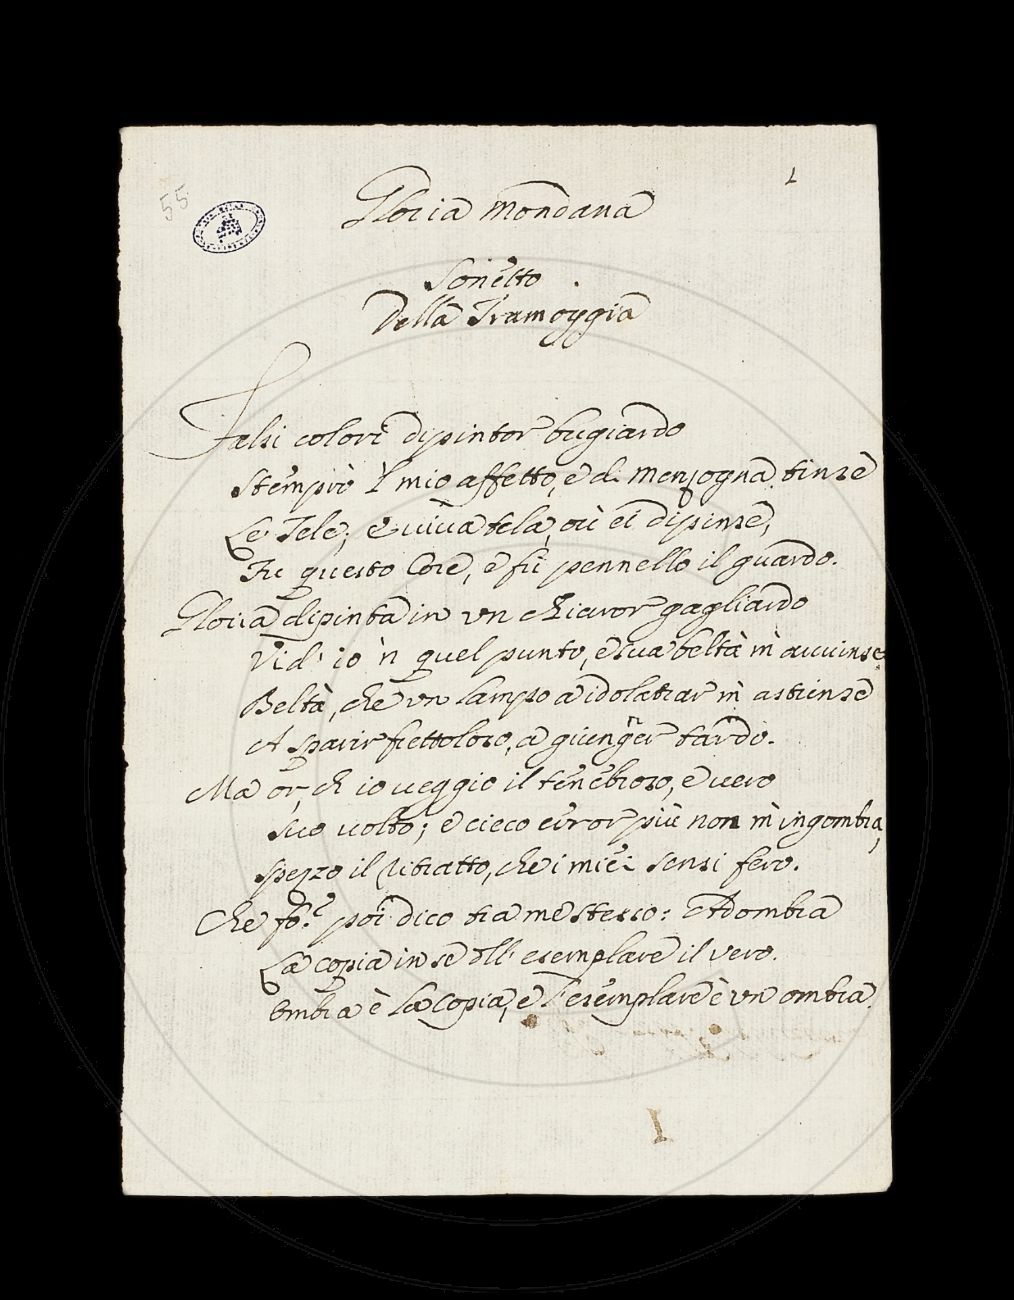 55
1
Gloria mondana
Sonetto
Della Tramoggia
Falsi colori dipintor bugiardo
Stemprò 'l mio affetto, e di menzogna tinse
Le Tele; e viva tela, ov' ei dipinse,
Fu questo Core, e fù pennello il guardo.
Gloria dipinta in un chiaror gagliardo
Vid' io 'n quel punto, e sua beltà m' avvinse
Beltà, che un lampo a idolatrar m' astrense
A sparir frettoloso, a giunger tardo.
Ma or, ch' io veggio il tenebroso, e vero
suo volto; e cieco error più non m' ingombra,
spezzo il Ritratto, che i miei sensi fero.
Che fò? poi dico tra me stesso: Adombra
La copia in se dll' esemplare il vero.
Ombra è la copia, e l' esemplare è un ombra.
I